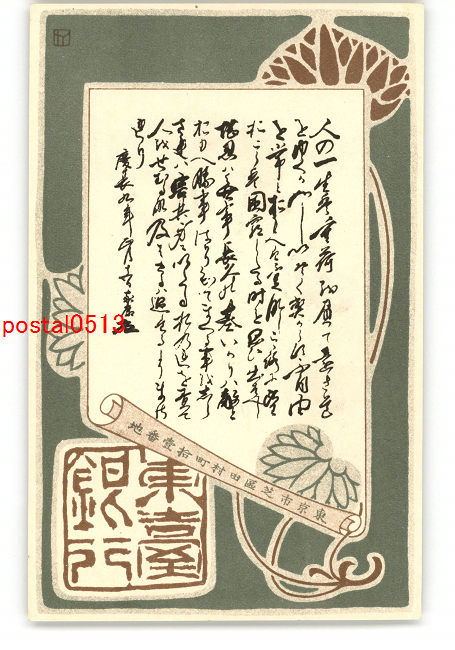 人の一生は重荷を負て遠き道
をゆくが如しいそぐべからず不自由
を常とおもへば不足なしこころに望
おこらば困窮したる時を思ひ出すべし
堪忍は無事長久の基いかりは敵と
おもへ勝事ばかり知てまくる事を知ら
ざれば害其身にいたるおのれを責て
人をせむるな及ばざるは過たるよりまさ
れり
慶長九年正月十五日 家康
東京市芝區田村町拾壹番地
東臺
銀行
postal0513